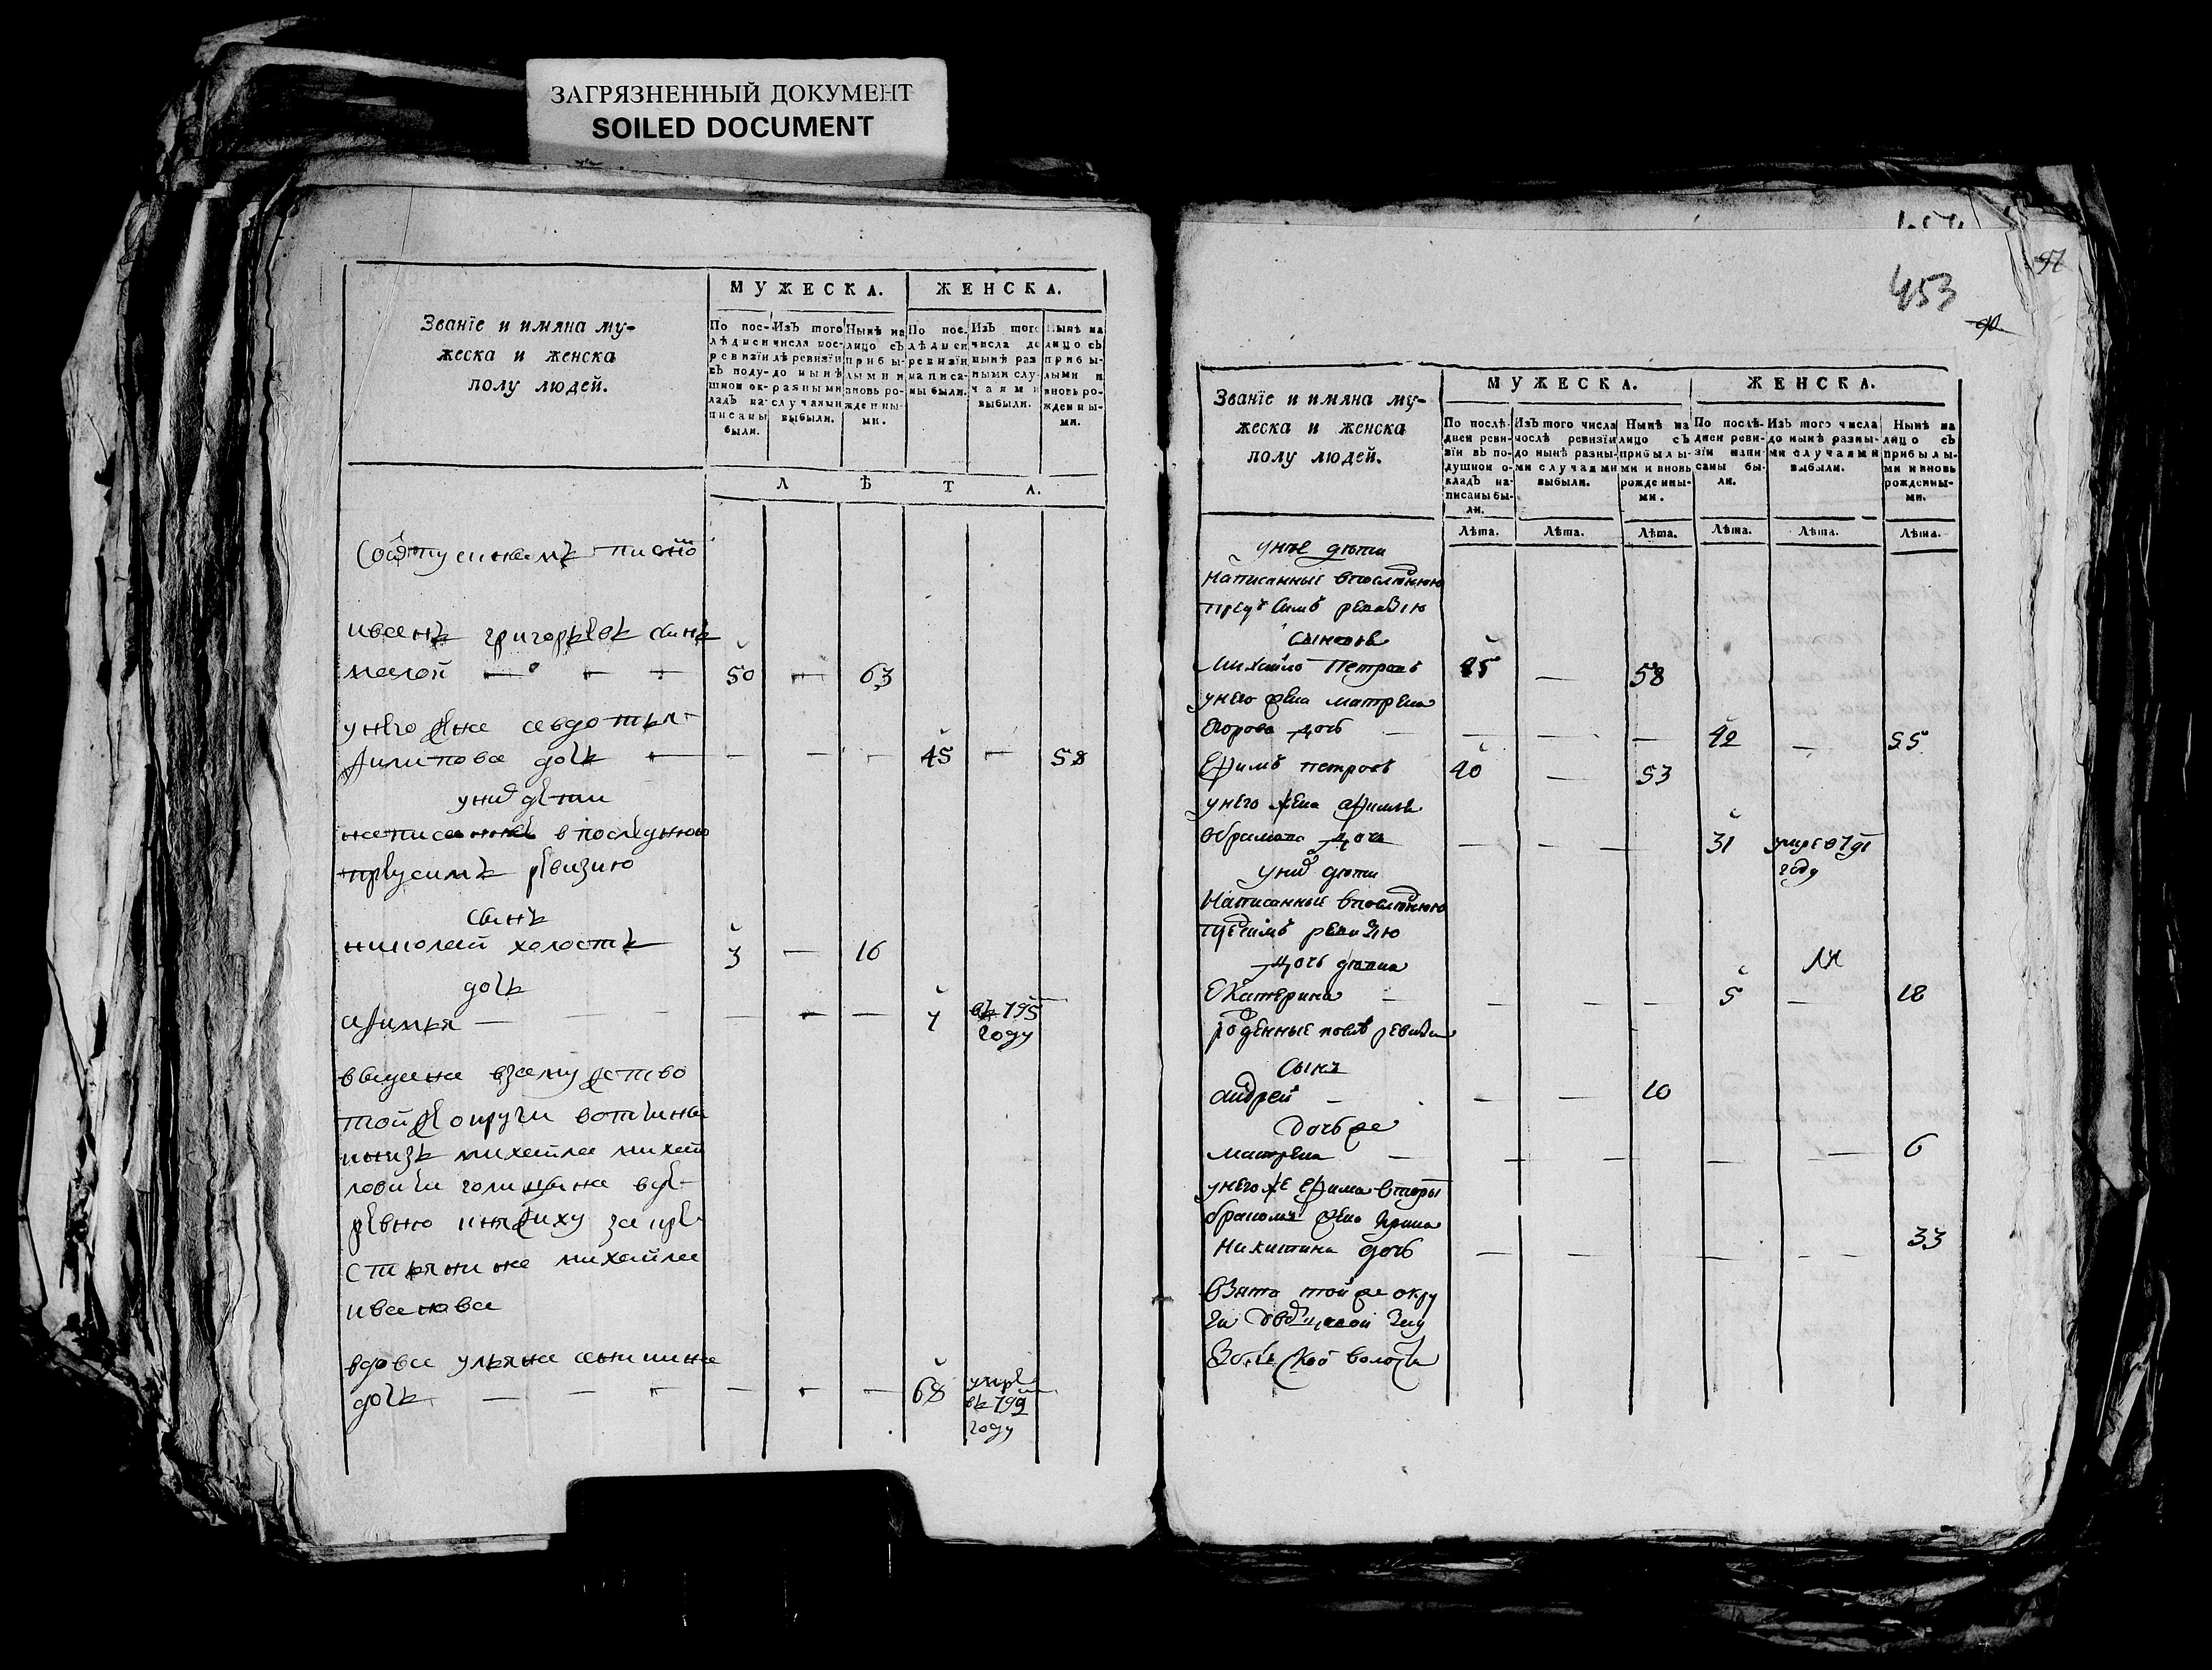 ЗАГРЯЗНЕННЫЙ ДОКУМЕНТ
SOILED DOCUMENT
Званїе и имяна му-
жеска и женска
полу людей.
МУЖЕСКА.
ЖЕНСКА.
По пос-
лѣднеи
ревизїи
въ поду-
шнои ок-
ладъ на-
писаны
были.
Изъ того
числа пос-
лѣ ревизїи
до нынѣ
разными
случаями
выбыли.
Нынѣ на
лицо съ
прибы-
лыми и
вновь ро-
жденны-
ми.
По пос-
лѣднеи
ревизїи
написа-
ны были.
Изъ того
числа до
нынѣ раз
ными слу-
чаями
выбыли.
Нынѣ на
лицо съ
прибы-
лыми и
вновь ро-
жденны-
ми.
ЛѢТА.
иванъ григорьевъ сынъ
малой 50 63
унего жена авдотья
филипова дочь 45 58
уних дети
написанные впоследнюю
ревизию
сынъ
николай холостъ 3 16
дочь
афимья 7 въ 795
году
выдана взамужство
тойже округи вотчины
князь михайла михай
ловича голицына вде-
ревню за кре
стьянина михайла
иванова
вдова ульяна дочь 68 умре
въ 799
году
453
97
90
Званїе и имяна му-
жеска и женска
полу людей.
МУЖЕСКА.
ЖЕНСКА.
По послѣ-
днеи реви-
зїи въ по-
душнои о-
кладъ на-
писаны бы-
ли.
Изъ того числа
послѣ ревизїи
до нынѣ разны-
ми случаями
выбыли.
Нынѣ на
лицо съ
прибылы-
ми и вновь
рожденны-
ми.
По послѣ-
днеи реви-
зїи напи-
саны бы-
ли.
Изъ того числа
до нынѣ разны-
ми случаями
выбыли.
Нынѣ на
лицо съ
прибылы-
ми и вновь
рожденны-
ми.
Лѣта. Лѣта. Лѣта. Лѣта. Лѣта. Лѣта.
унее дѣти
написанные впослѣднюю
ревизию
сыновья
Михайло Петровъ 45 58
унего жена матрена
Егорова дочь 42 55
Ефимъ петровъ 40 53
унего жена афимья
дочь 31 умре в 791
году
уних дѣти
Написанные впослѣднюю
ревизию
дочь девка
Екатерина 5 18
рожденные после ревизии
Сынъ
андрей 10
Дочь же
матрена 6
унегоже Ефима вторы
бракомъ жена Ирина
Никитина дочь 33
Взята тойже окру
ги дворцовой
волости